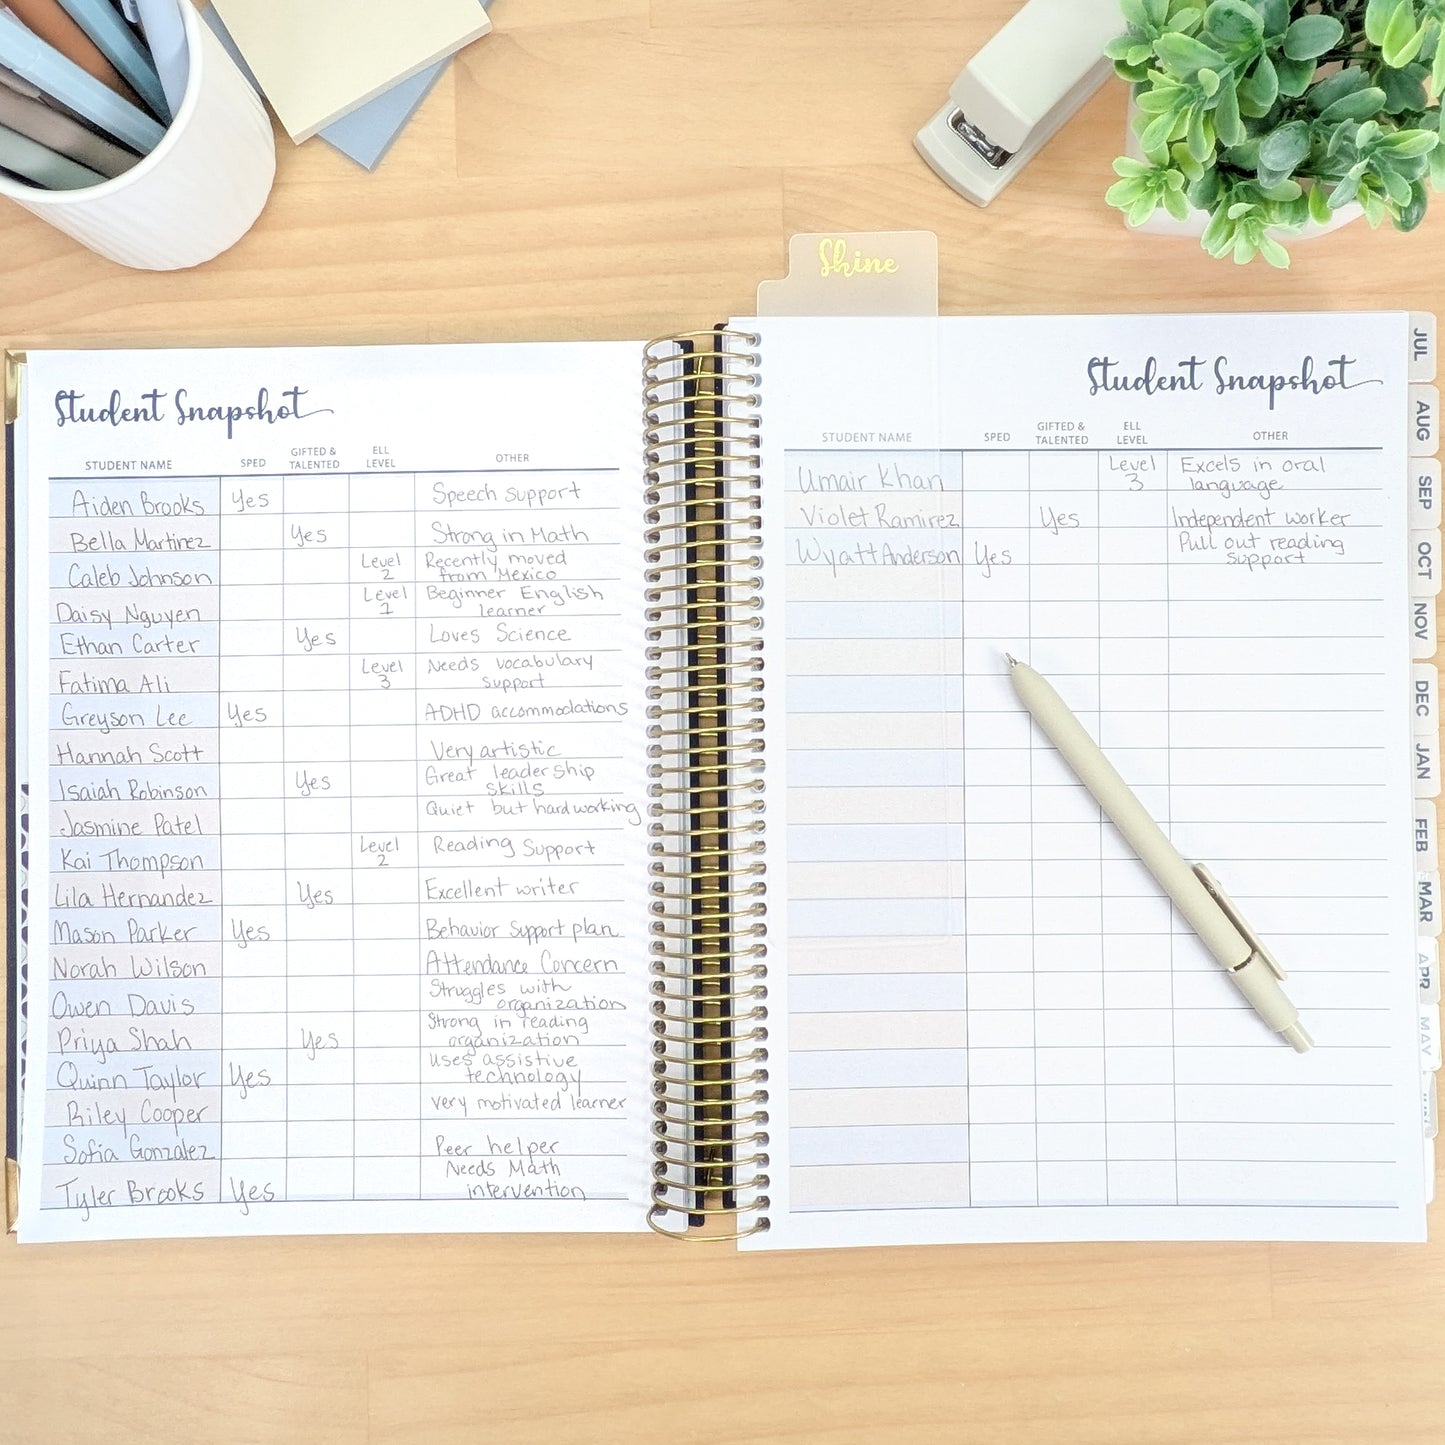 Shine
Student Snapshot
STUDENT NAME SPED GIFTED & TALENTED ELL LEVEL OTHER
Aiden Brooks Yes Speech support
Bella Martinez Yes Strong in Math
Caleb Johnson Level 2 Recently moved from Mexico
Daisy Nguyen Level 1 Beginner English learner
Ethan Carter Yes Loves Science
Fatima Ali Level 3 Needs vocabulary support
Greyson Lee Yes ADHD accommodations
Hannah Scott Very artistic
Isaiah Robinson Yes Great leadership skills
Jasmine Patel Quiet but hardworking
Kai Thompson Level 2 Reading Support
Lila Hernandez Yes Excellent writer
Mason Parker Yes Behavior support plan
Norah Wilson Attendance Concern
Owen Davis Struggles with organization
Priya Shah Yes Strong in reading organization
Quinn Taylor Yes uses assistive technology
Riley Cooper very motivated learner
Sofia Gonzalez Peer helper
Tyler Brooks Yes Needs Math intervention
Student Snapshot
STUDENT NAME SPED GIFTED & TALENTED ELL LEVEL OTHER
Umair Khan Level 3 Excels in oral language
Violet Ramirez Yes Independent worker
Wyatt Anderson Yes Pull out reading support
JUL
AUG
SEP
OCT
NOV
DEC
JAN
FEB
MAR
APR
MAY